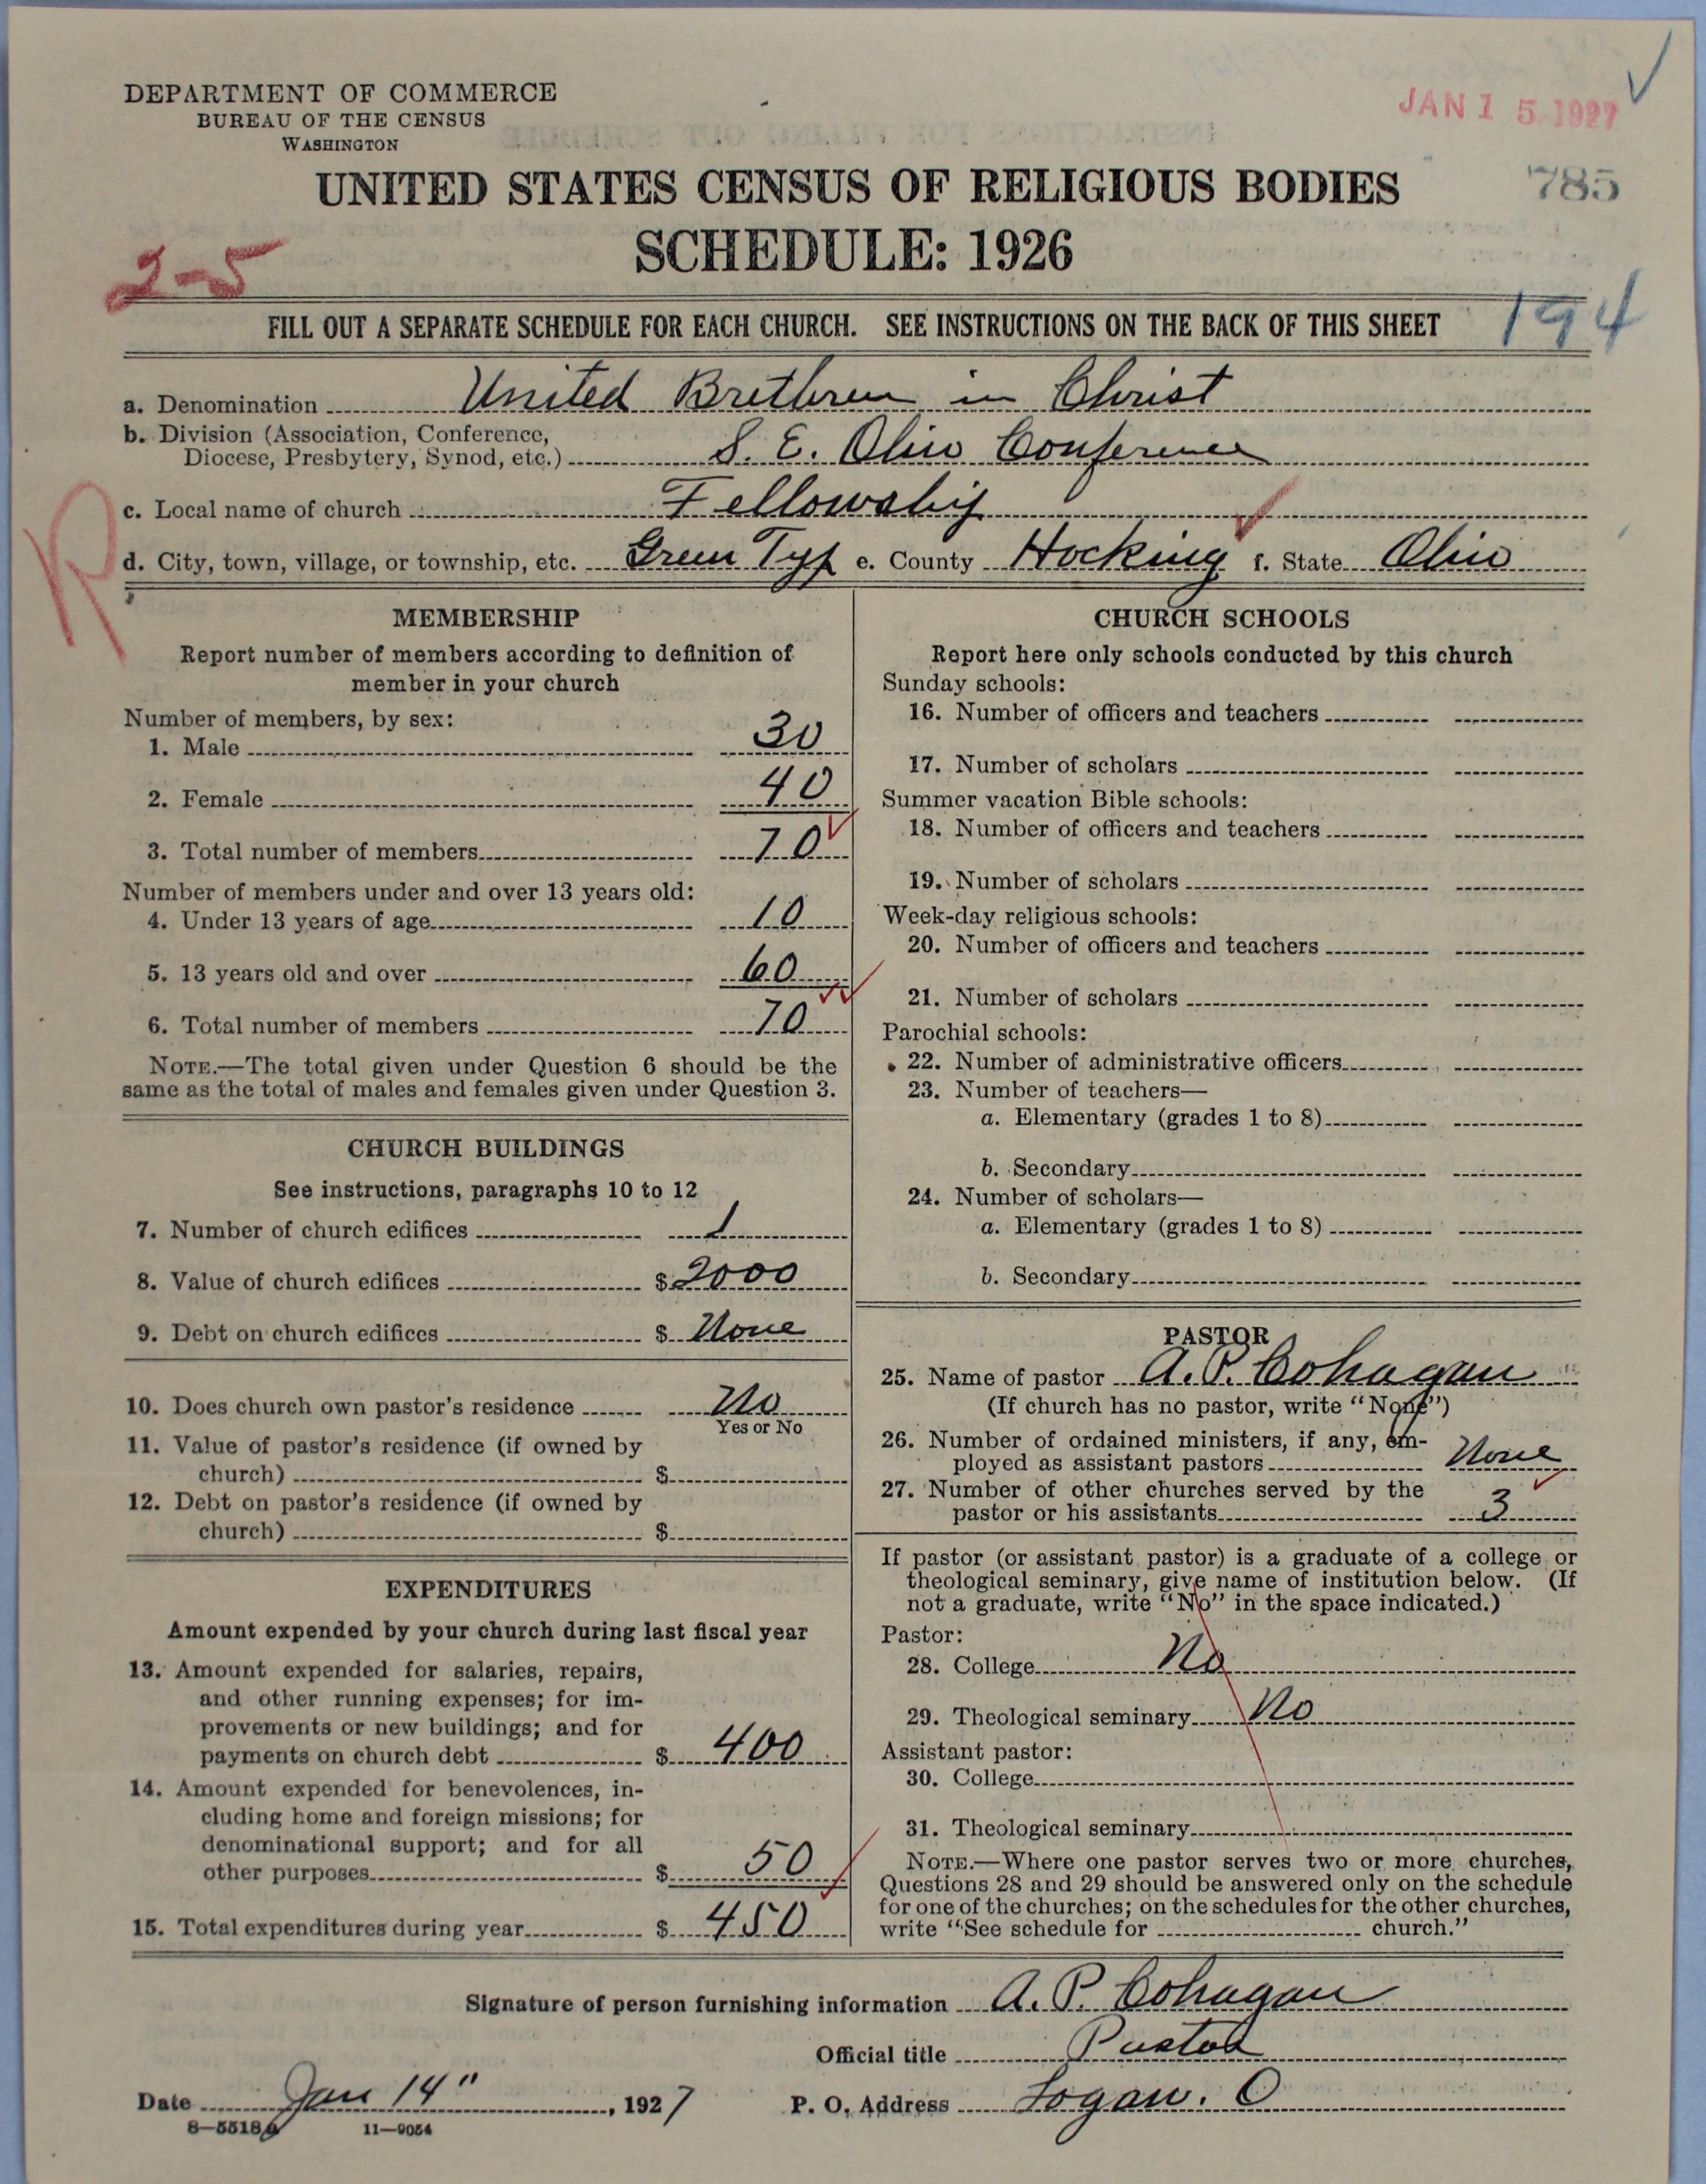 DEPARTMENT OF COMMERCE
BUREAU OF THE CENSUS
WASHINGTON
JAN 15 1927
UNITED STATES CENSUS OF RELIGIOUS BODIES
785
SCHEDULE: 1926
2-5
194
FILL OUT A SEPARATE SCHEDULE FOR EACH CHURCH. SEE INSTRUCTIONS ON THE BACK OF THIS SHEET
a. Denomination United Brethren in Christ
b. Division (Association, Conference,
Diocese, Presbytery, Synod, etc.) S. E. Ohio Conference
c. Local name of church Fellowship
R
d. City, town, village, or township, etc. Green Typ e. County Hocking f. State Ohio
MEMBERSHIP
Report number of members according to definition of
member in your church
Number of members, by sex:
1. Male 30
2. Female 40
3. Total number of members 70
Number of members under and over 13 years old:
4. Under 13 years of age 10
5. 13 years old and over 60
6. Total number of members 70
NOTE.—The total given under Question 6 should be the
same as the total of males and females given under Question 3.
CHURCH BUILDINGS
See instructions, paragraphs 10 to 12
7. Number of church edifices 1
8. Value of church edifices $ 2000
9. Debt on church edifices $ None
10. Does church own pastor's residence No
Yes or No
11. Value of pastor's residence (if owned by
church) $
12. Debt on pastor's residence (if owned by
church) $
EXPENDITURES
Amount expended by your church during last fiscal year
13. Amount expended for salaries, repairs,
and other running expenses; for im-
provements or new buildings; and for
payments on church debt $ 400
14. Amount expended for benevolences, in-
cluding home and foreign missions; for
denominational support; and for all
other purposes $ 50
15. Total expenditures during year $ 450
CHURCH SCHOOLS
Report here only schools conducted by this church
Sunday schools:
16. Number of officers and teachers
17. Number of scholars
Summer vacation Bible schools:
18. Number of officers and teachers
19. Number of scholars
Week-day religious schools:
20. Number of officers and teachers
21. Number of scholars
Parochial schools:
22. Number of administrative officers
23. Number of teachers—
a. Elementary (grades 1 to 8)
b. Secondary
24. Number of scholars—
a. Elementary (grades 1 to 8)
b. Secondary
PASTOR
25. Name of pastor A. P. Cohagan
(If church has no pastor, write "None")
26. Number of ordained ministers, if any, em-
ployed as assistant pastors None
27. Number of other churches served by the
pastor or his assistants 3
If pastor (or assistant pastor) is a graduate of a college or
theological seminary, give name of institution below. (If
not a graduate, write "No" in the space indicated.)
Pastor:
28. College No
29. Theological seminary No
Assistant pastor:
30. College
31. Theological seminary
NOTE.—Where one pastor serves two or more churches,
Questions 28 and 29 should be answered only on the schedule
for one of the churches; on the schedules for the other churches,
write "See schedule for church."
Signature of person furnishing information A. P. Cohagan
Official title Pastor
Date Jan 14", 1927 P. O. Address Logan. O
8-5518a 11-9054